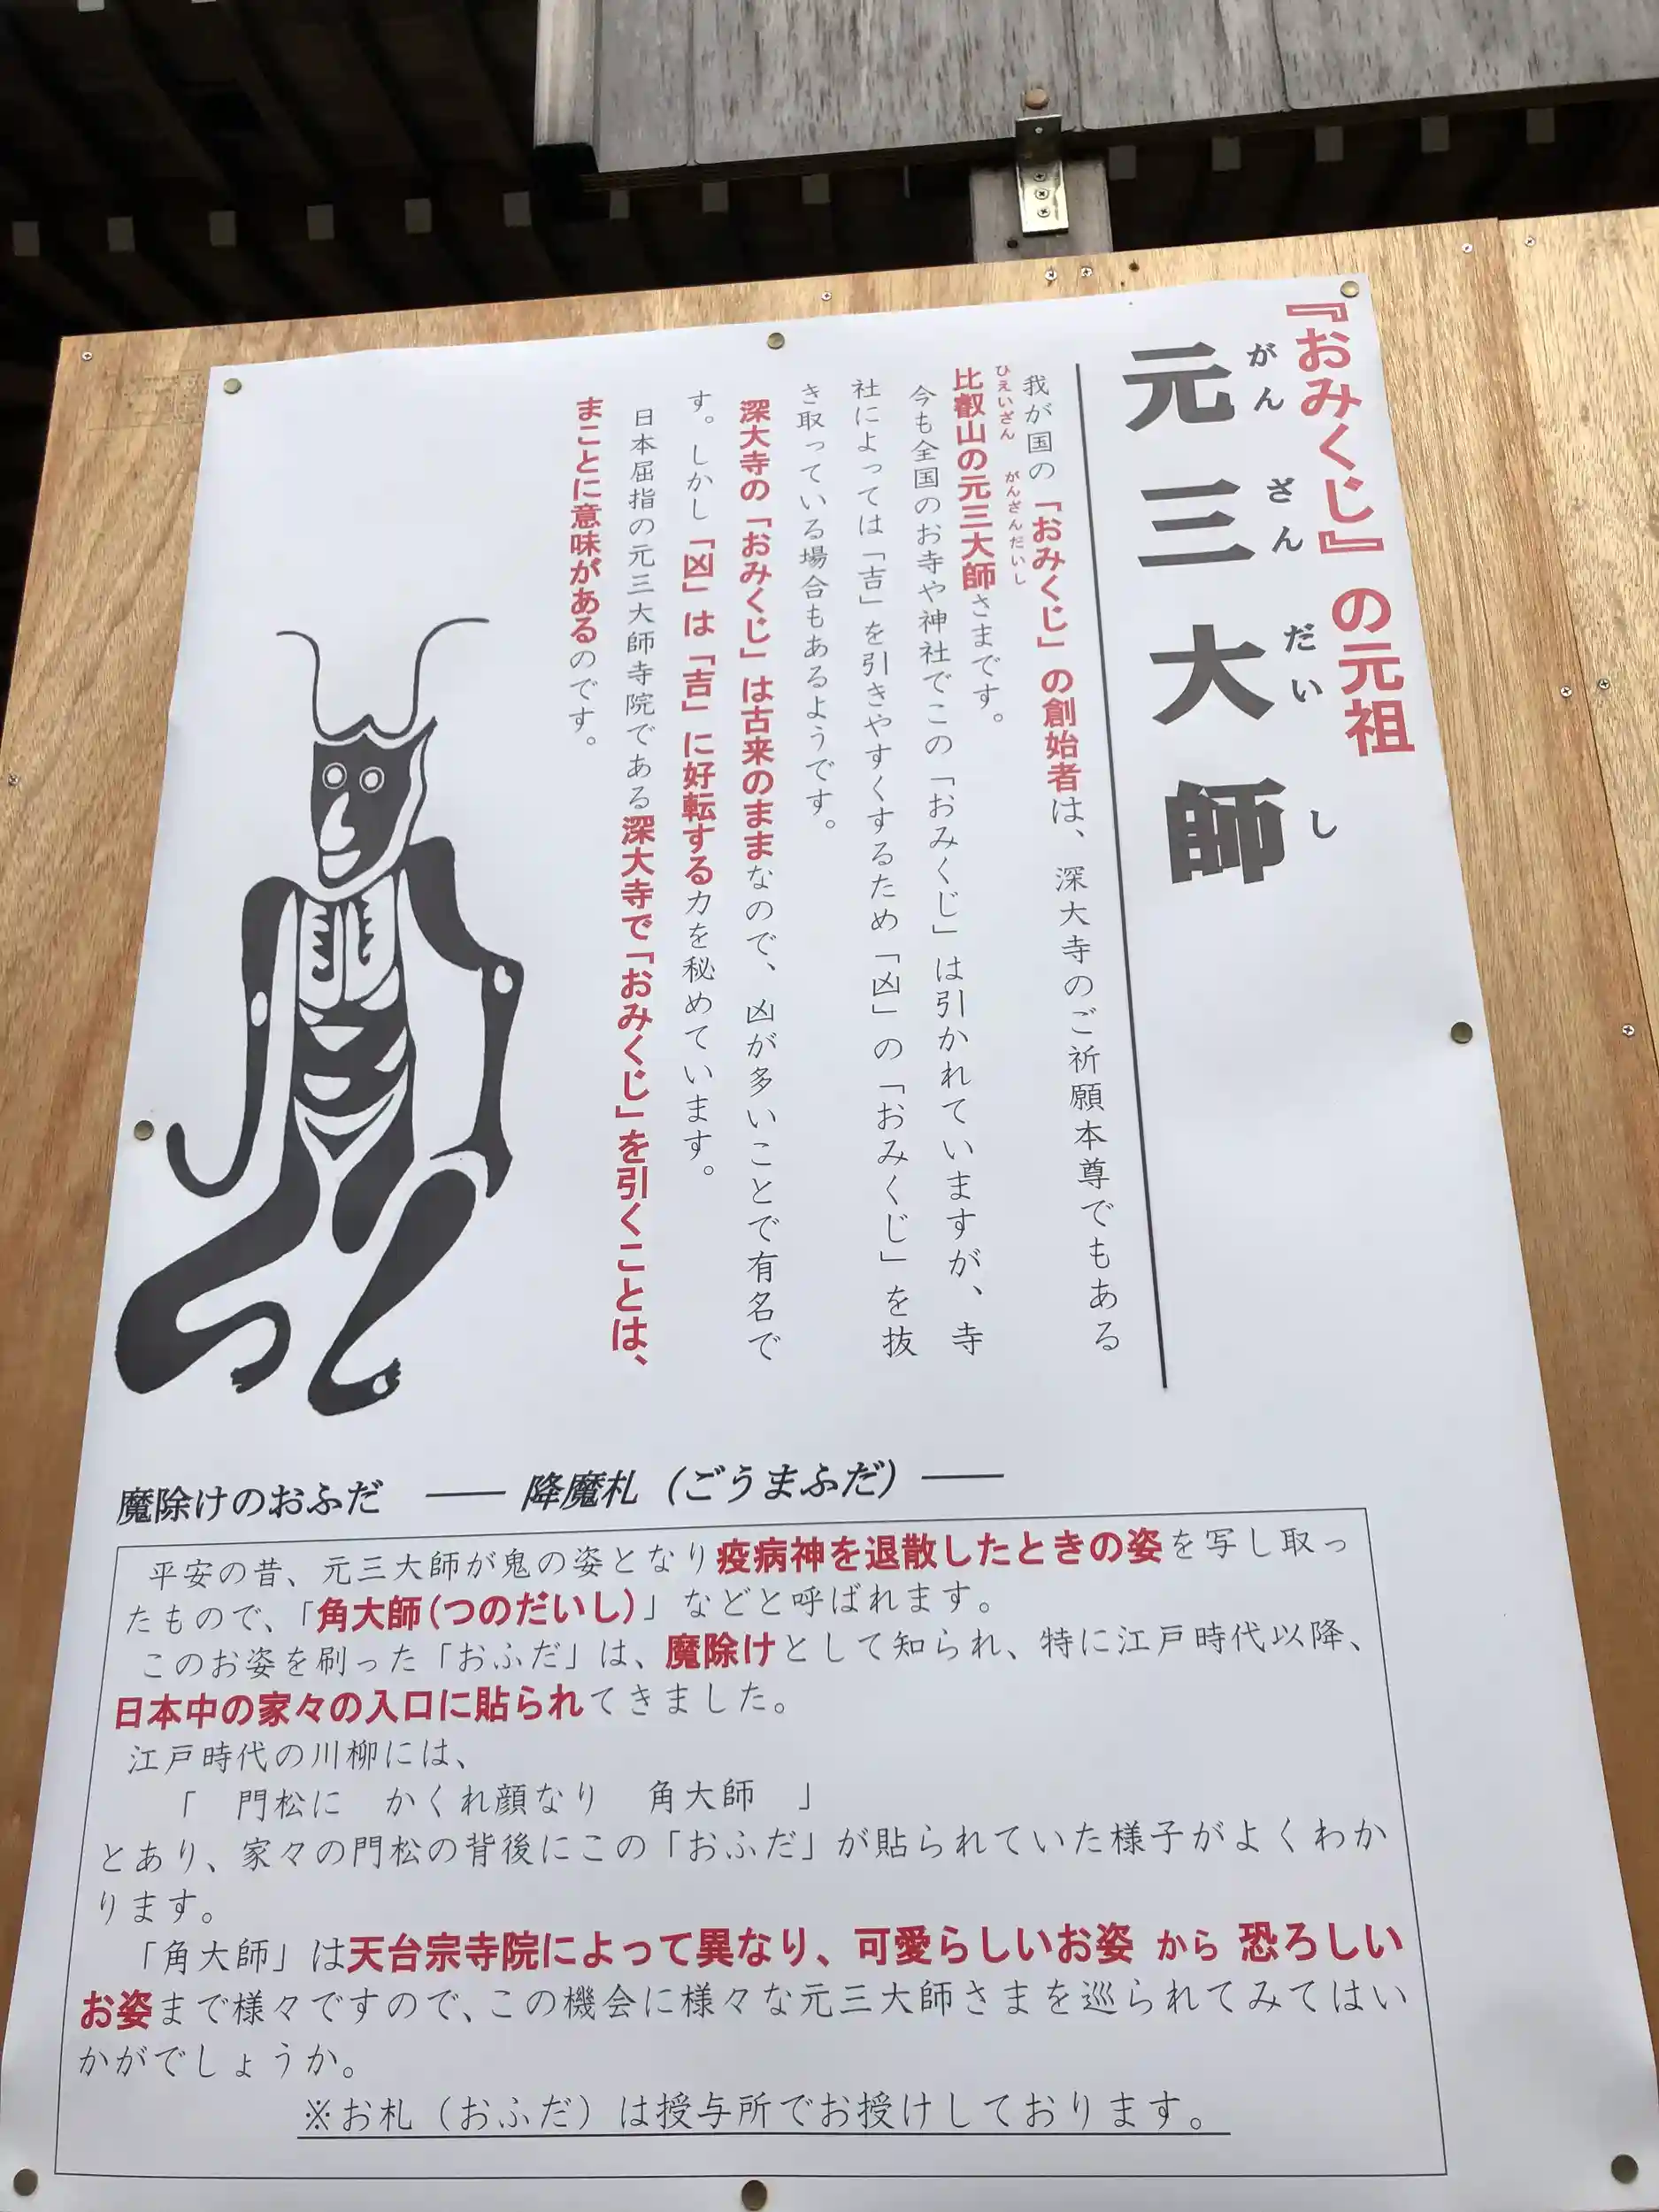 『おみくじ』の元祖
がんざんだいし
元三大師
我が国の「おみくじ」の創始者は、深大寺のご祈願本尊でもある
ひえいざん がんざんだいし
比叡山の元三大師さまです。
今も全国のお寺や神社でこの「おみくじ」は引かれていますが、寺
社によっては「吉」を引きやすくするため「凶」の「おみくじ」を抜
き取っている場合もあるようです。
深大寺の「おみくじ」は古来のままなので、凶が多いことで有名で
す。しかし「凶」は「吉」に好転する力を秘めています。
日本屈指の元三大師寺院である深大寺で「おみくじ」を引くことは、
まことに意味があるのです。
魔除けのおふだ ―― 降魔札（ごうまふだ）――
平安の昔、元三大師が鬼の姿となり疫病神を退散したときの姿を写し取っ
たもので、「角大師(つのだいし)」などと呼ばれます。
このお姿を刷った「おふだ」は、魔除けとして知られ、特に江戸時代以降、
日本中の家々の入口に貼られてきました。
江戸時代の川柳には、
「 門松に かくれ顔なり 角大師 」
とあり、家々の門松の背後にこの「おふだ」が貼られていた様子がよくわか
ります。
「角大師」は天台宗寺院によって異なり、可愛らしいお姿 から 恐ろしい
お姿まで様々ですので、この機会に様々な元三大師さまを巡られてみてはい
かがでしょうか。
※お札（おふだ）は授与所でお授けしております。